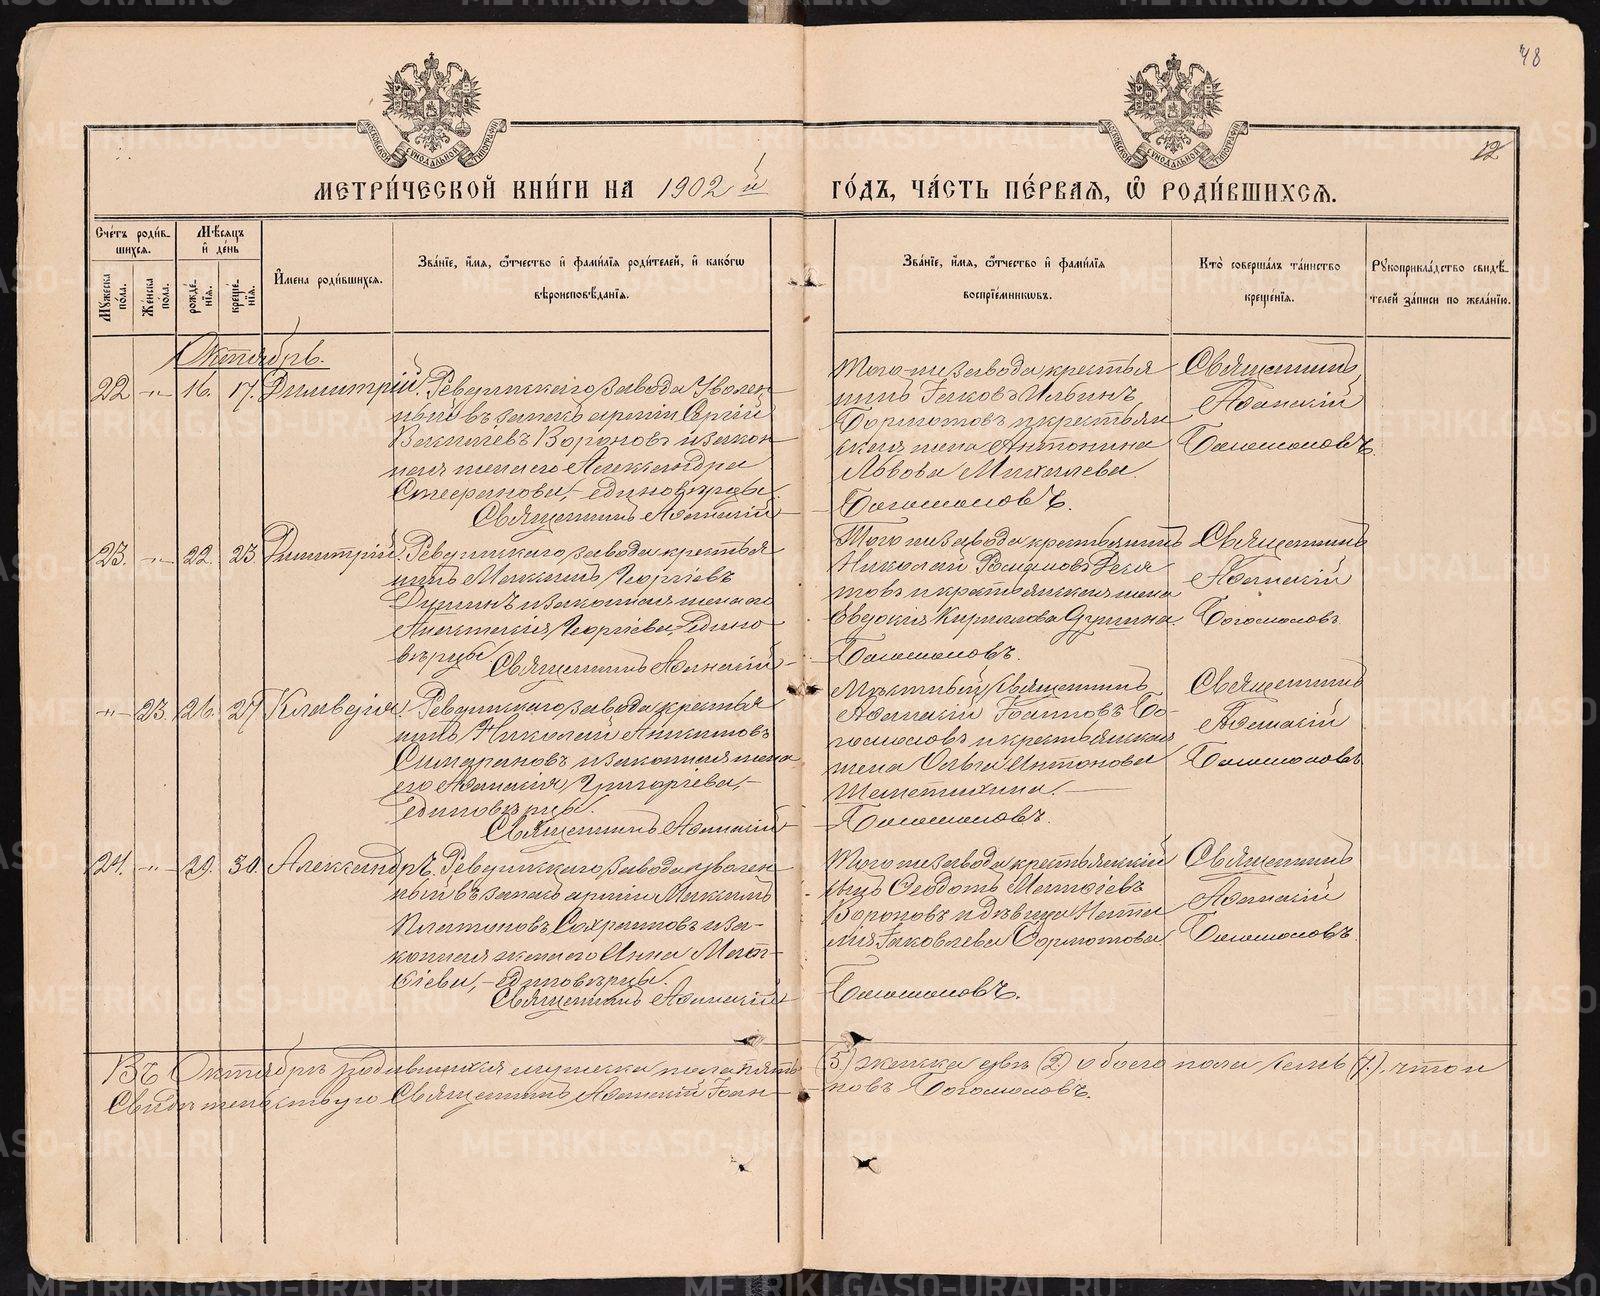 48
12
МЕТРИ́ЧЕСКОЙ КНИ́ГИ НА 1902 й ГО́ДЪ, ЧА́СТЬ ПЕ́РВАЯ, Ѡ РОДИ́ВШИХСЯ.
Сче́тъ роди́в-
шихся.
Мꙋжеска
по́ла.
Же́нска
пола.
Мѣ́сяцъ
и де́нь
рожде́-
нїя.
креще́-
нїя.
И҆мена роди́вшихся.
Зва́нїе, и҆́мя, ѻ҆́тчество и҆ фами́лїя роди́телей, и҆ како́гѡ
вѣроисповѣ́данїя.
Зва́нїе, и҆́мя, ѻ҆́тчество и҆ фами́лїя
воспрїе́мникѡвъ.
Кто̀ соверша́лъ та́инство
креще́нїя.
Рꙋкоприкла́дство свидѣ́-
телей за́писи по жела́нїю.
Октябрь.
22 -"- 16. 17. Димитрій. Ревдинскаго завода Уволен-
ный въ запасъ арміи Сергій
Вакиліевъ Вороновъ и закон-
ная жена его Александра
Стефанова, - единовѣрцы.
Священникъ Аѳанасій
Того-же завода крестья
нинъ Іаковъ Ильинъ
Бормотовъ и крестьян
ская жена Антонина
Львова Михалева.
Богомоловъ.
Священникъ
Аѳанасій
Богомоловъ.
23. -"- 22. 23 Димитрій. Ревдинскаго завода крестья
нинъ Максимъ Георгіевъ
Душинъ и законная жена его
Анастасія Георгіева, Едино-
вѣрцы
Священникъ Аѳанасій
Того же завода крестьянинъ
Николай
и крестьянская жена
Евдокія Кирилова Душина.
Богомоловъ.
Священникъ
Аѳанасій
Богомоловъ
-"- 23. 26. 27 Клавдія. Ревдинскаго завода крестья
нинъ Николай Анкиновъ
и законная жена
его Аѳанасія Григорьева, -
единовѣрцы.
Священникъ Аѳанасій
Мѣстный священникъ
Аѳанасій Іоанновъ Бо-
гомоловъ и крестьянская
жена Ольга Антонова
Шеметихина.
Богомоловъ.
Священникъ
Аѳанасій
Богомоловъ
24. -"- 29. 30. Александръ. Ревдинскаго завода уволен-
ный въ запасъ арміи Максимъ
Платоновъ Сохранновъ и за-
конная жена его Анна Мат-
ѳіева, - единовѣрцы.
Священникъ Аѳанасій
Того же завода крестьянскій
сынъ Ѳеодотъ Матѳіевъ
Вороновъ и дѣвица Ната
лія Іаковлева Бормотова.
Богомоловъ.
Священникъ
Аѳанасій
Богомоловъ.
Въ Октябрѣ родившихся мужска пола пять (5) женска двѣ (2) обоего пола семь (7.). что и
Свидѣтельствую Священникъ Аѳанасій Іоан-новъ Богомоловъ.
METRIKI.GASO-URAL.RU